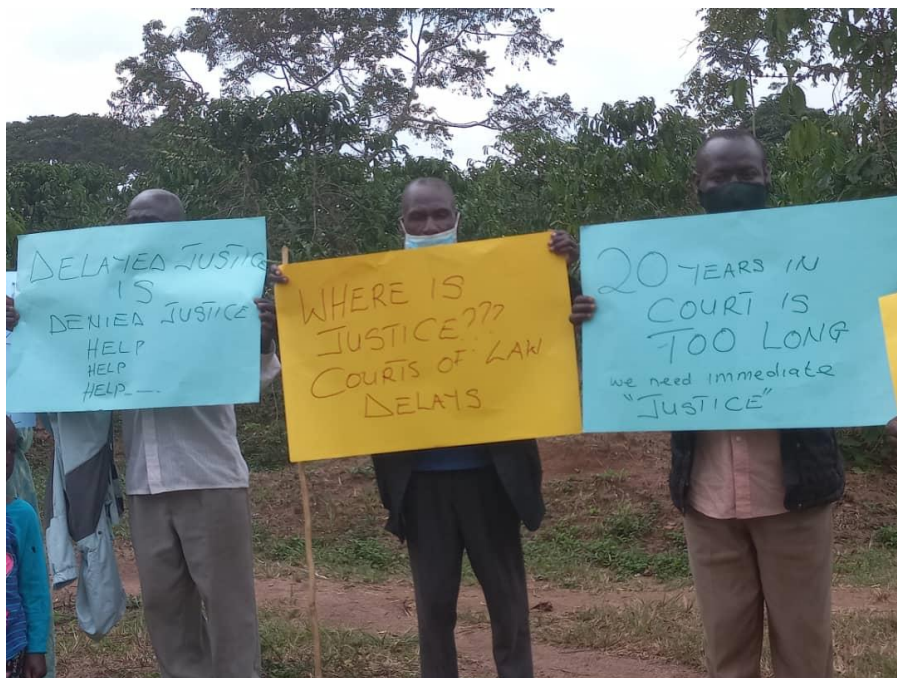 DELAYED JUSTICE
IS
DENIED JUSTICE
HELP
HELP
HELP....
WHERE IS
JUSTICE???
COURTS OF LAW
DELAYS
20 YEARS IN
COURT IS
TOO LONG
we need immediate
"JUSTICE"